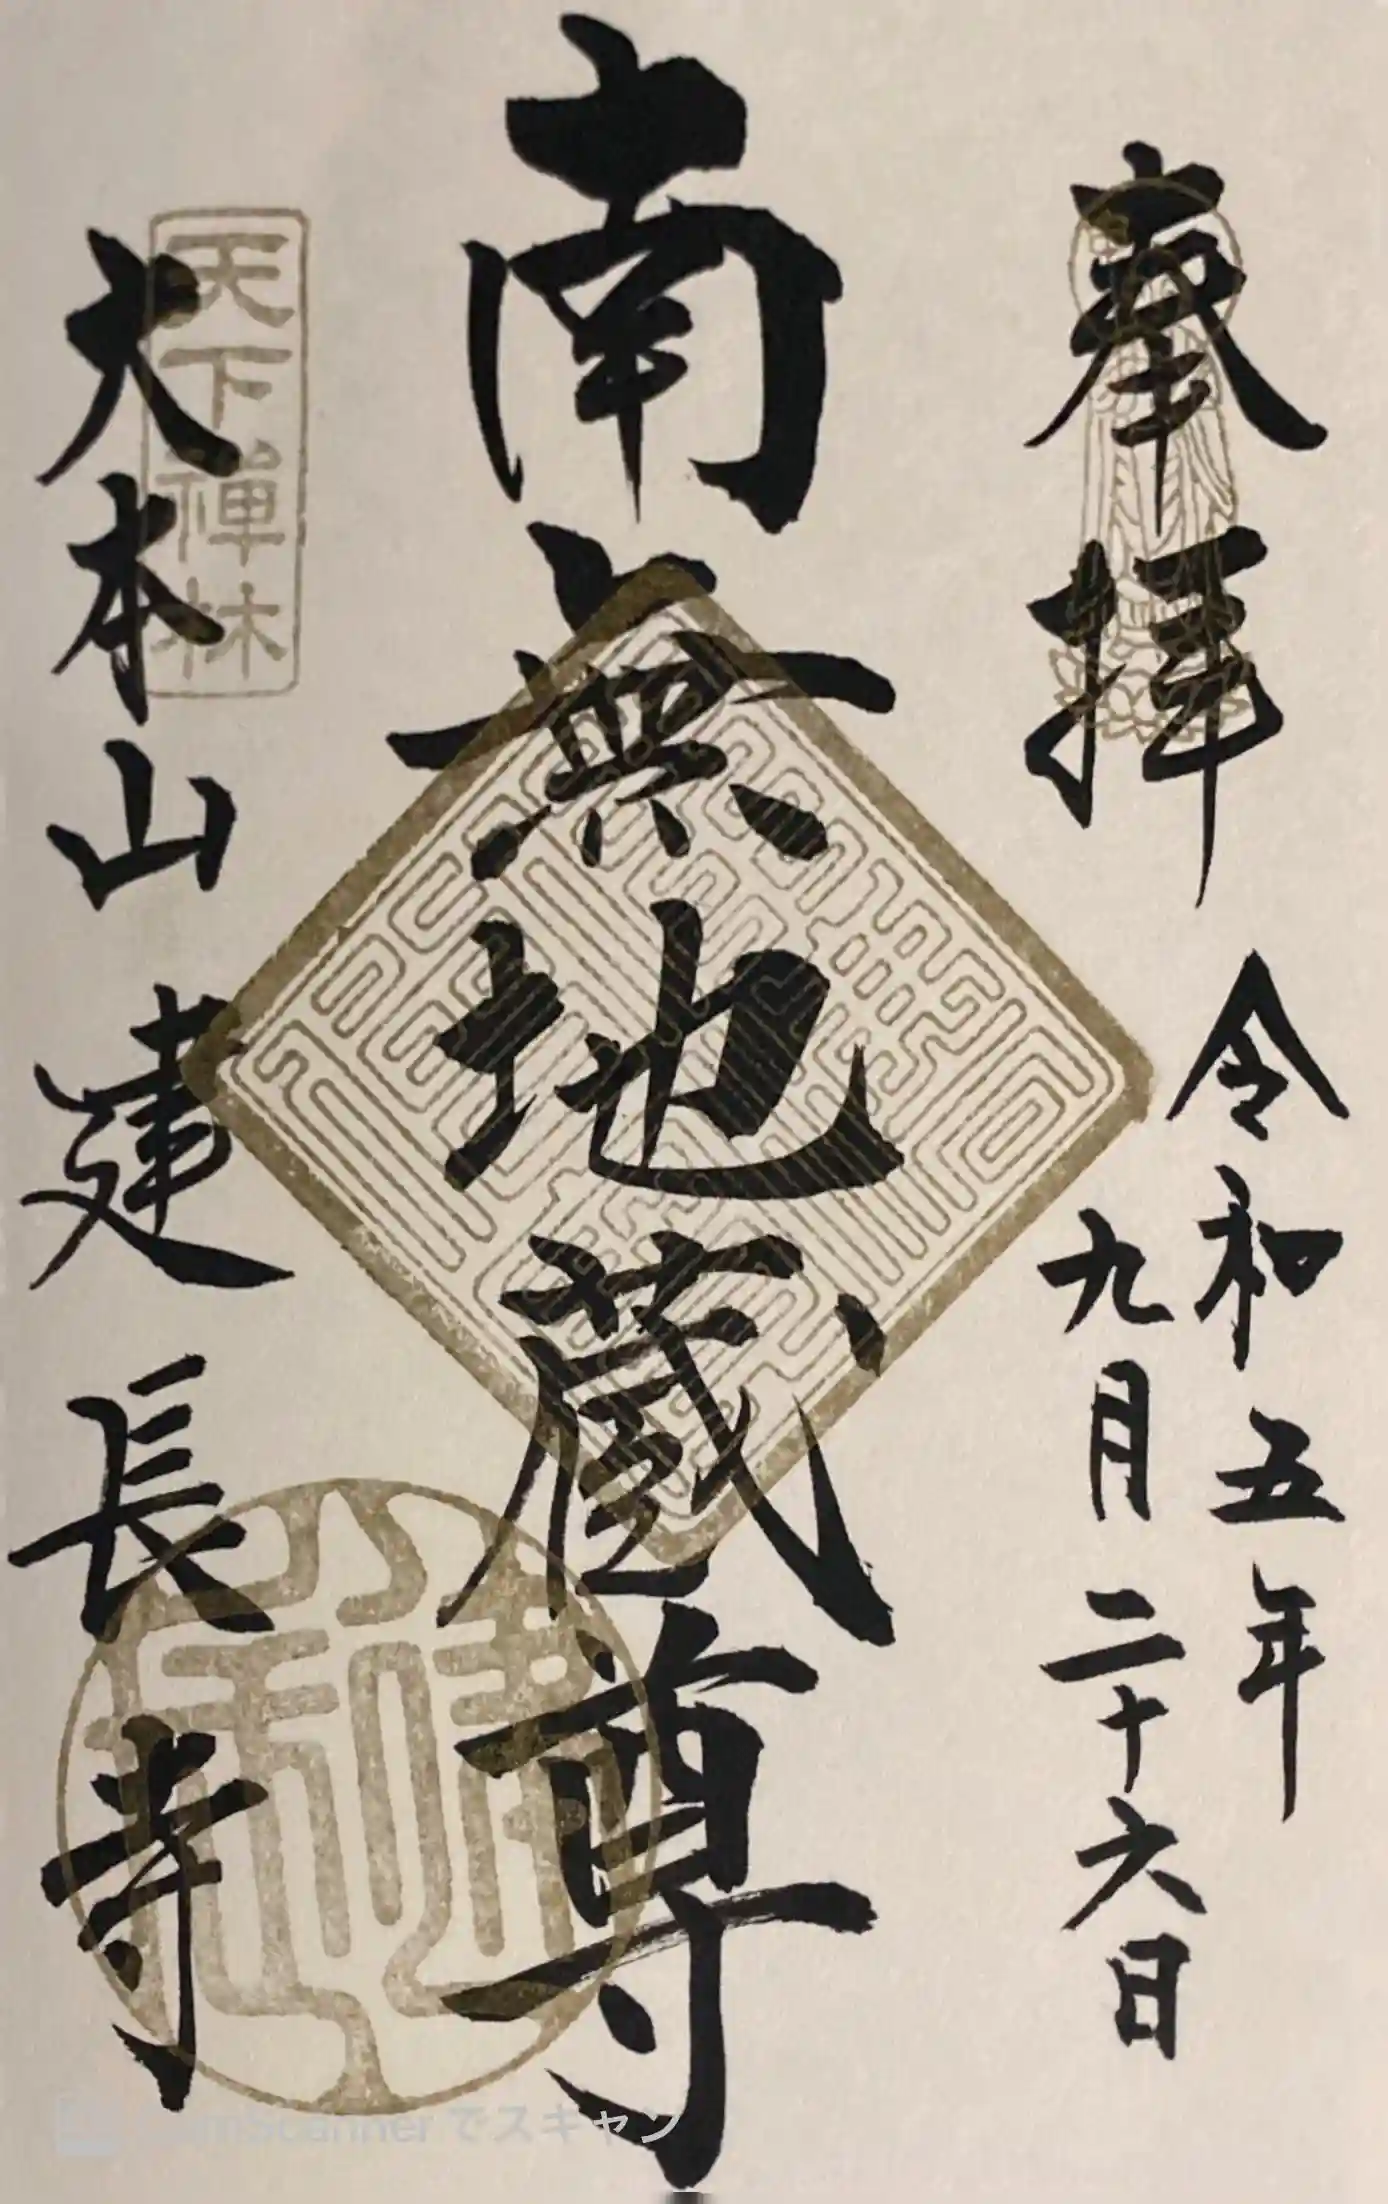 奉拝
令和五年
九月二十六日
南無地蔵尊
天下禅林
大本山建長寺
Scannerでスキャン